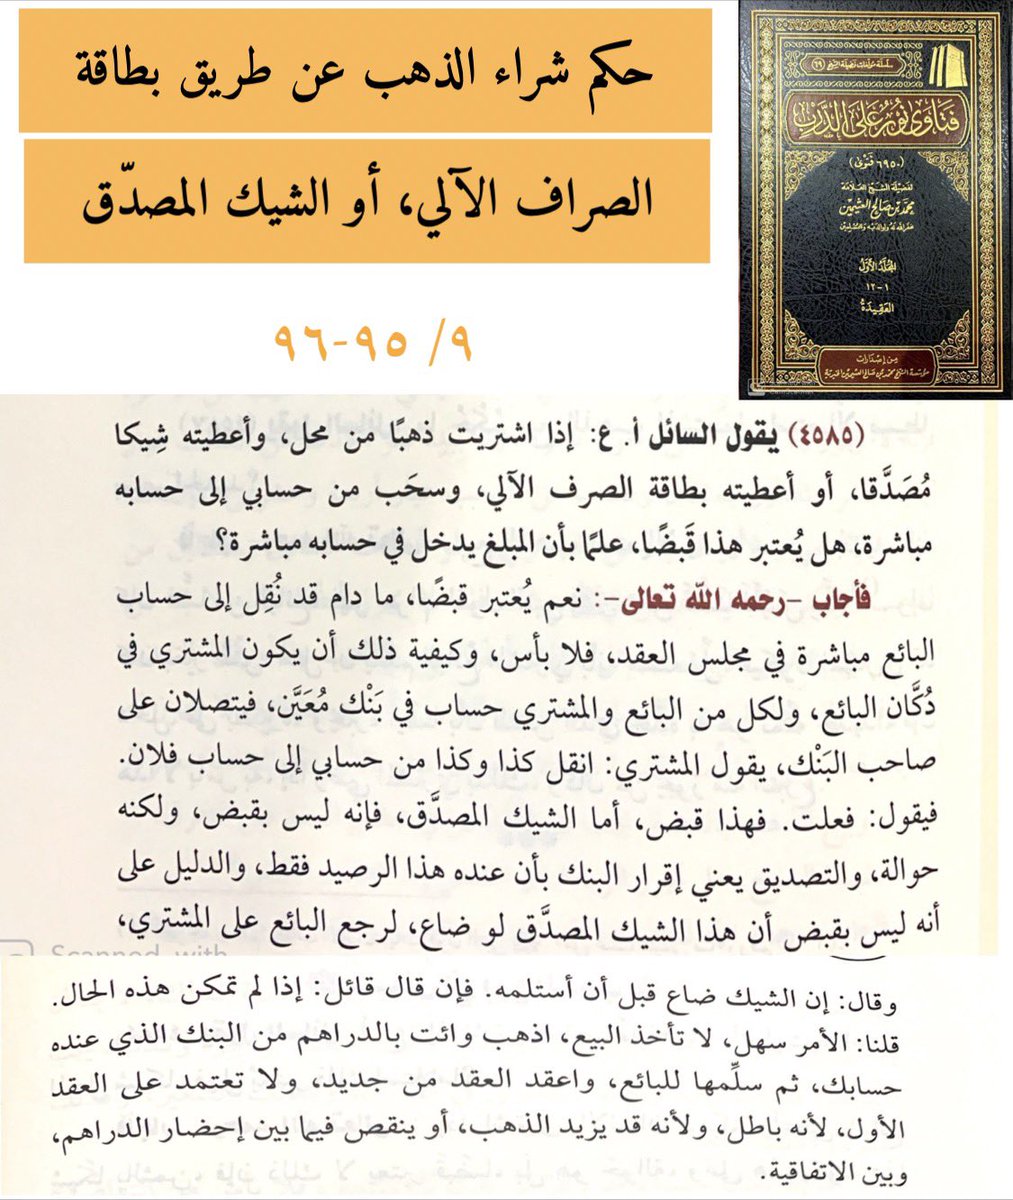 حكم شراء الذهب عن طريق بطاقة
الصراف الآلي، أو الشيك المصدّق
٩/ ٩٥-٩٦
سلسلة مؤلفات فضيلة الشيخ (٦٩)
فتاوى نور على الدرب
(٦٩٥٠ فتوى)
لفضيلة الشيخ العلامة
محمد بن صالح العثيمين
غفر الله له ولوالديه وللمسلمين
المجلد الأول
١-١٢
العقيدة
من إصدارات
مؤسسة الشيخ محمد بن صالح العثيمين الخيرية
(٤٥٨٥) يقول السائل أ. ع: إذا اشتريت ذهبًا من محل، وأعطيته شِيكا
مُصَدَّقا، أو أعطيته بطاقة الصرف الآلي، وسحَب من حسابي إلى حسابه
مباشرة، هل يُعتبر هذا قَبضًا، علمًا بأن المبلغ يدخل في حسابه مباشرة؟
فأجاب –رحمه الله تعالى–: نعم يُعتبر قبضًا، ما دام قد نُقِل إلى حساب
البائع مباشرة في مجلس العقد، فلا بأس، وكيفية ذلك أن يكون المشتري في
دُكَّان البائع، ولكل من البائع والمشتري حساب في بَنْك مُعَيَّن، فيتصلان على
صاحب البَنْك، يقول المشتري: انقل كذا وكذا من حسابي إلى حساب فلان.
فيقول: فعلت. فهذا قبض، أما الشيك المصدَّق، فإنه ليس بقبض، ولكنه
حوالة، والتصديق يعني إقرار البنك بأن عنده هذا الرصيد فقط، والدليل على
أنه ليس بقبض أن هذا الشيك المصدَّق لو ضاع، لرجع البائع على المشتري،
Scanned with
وقال: إن الشيك ضاع قبل أن أستلمه. فإن قال قائل: إذا لم تمكن هذه الحال.
قلنا: الأمر سهل، لا تأخذ البيع، اذهب وائت بالدراهم من البنك الذي عنده
حسابك، ثم سلِّمها للبائع، واعقد العقد من جديد، ولا تعتمد على العقد
الأول، لأنه باطل، ولأنه قد يزيد الذهب، أو ينقص فيما بين إحضار الدراهم،
وبين الاتفاقية.